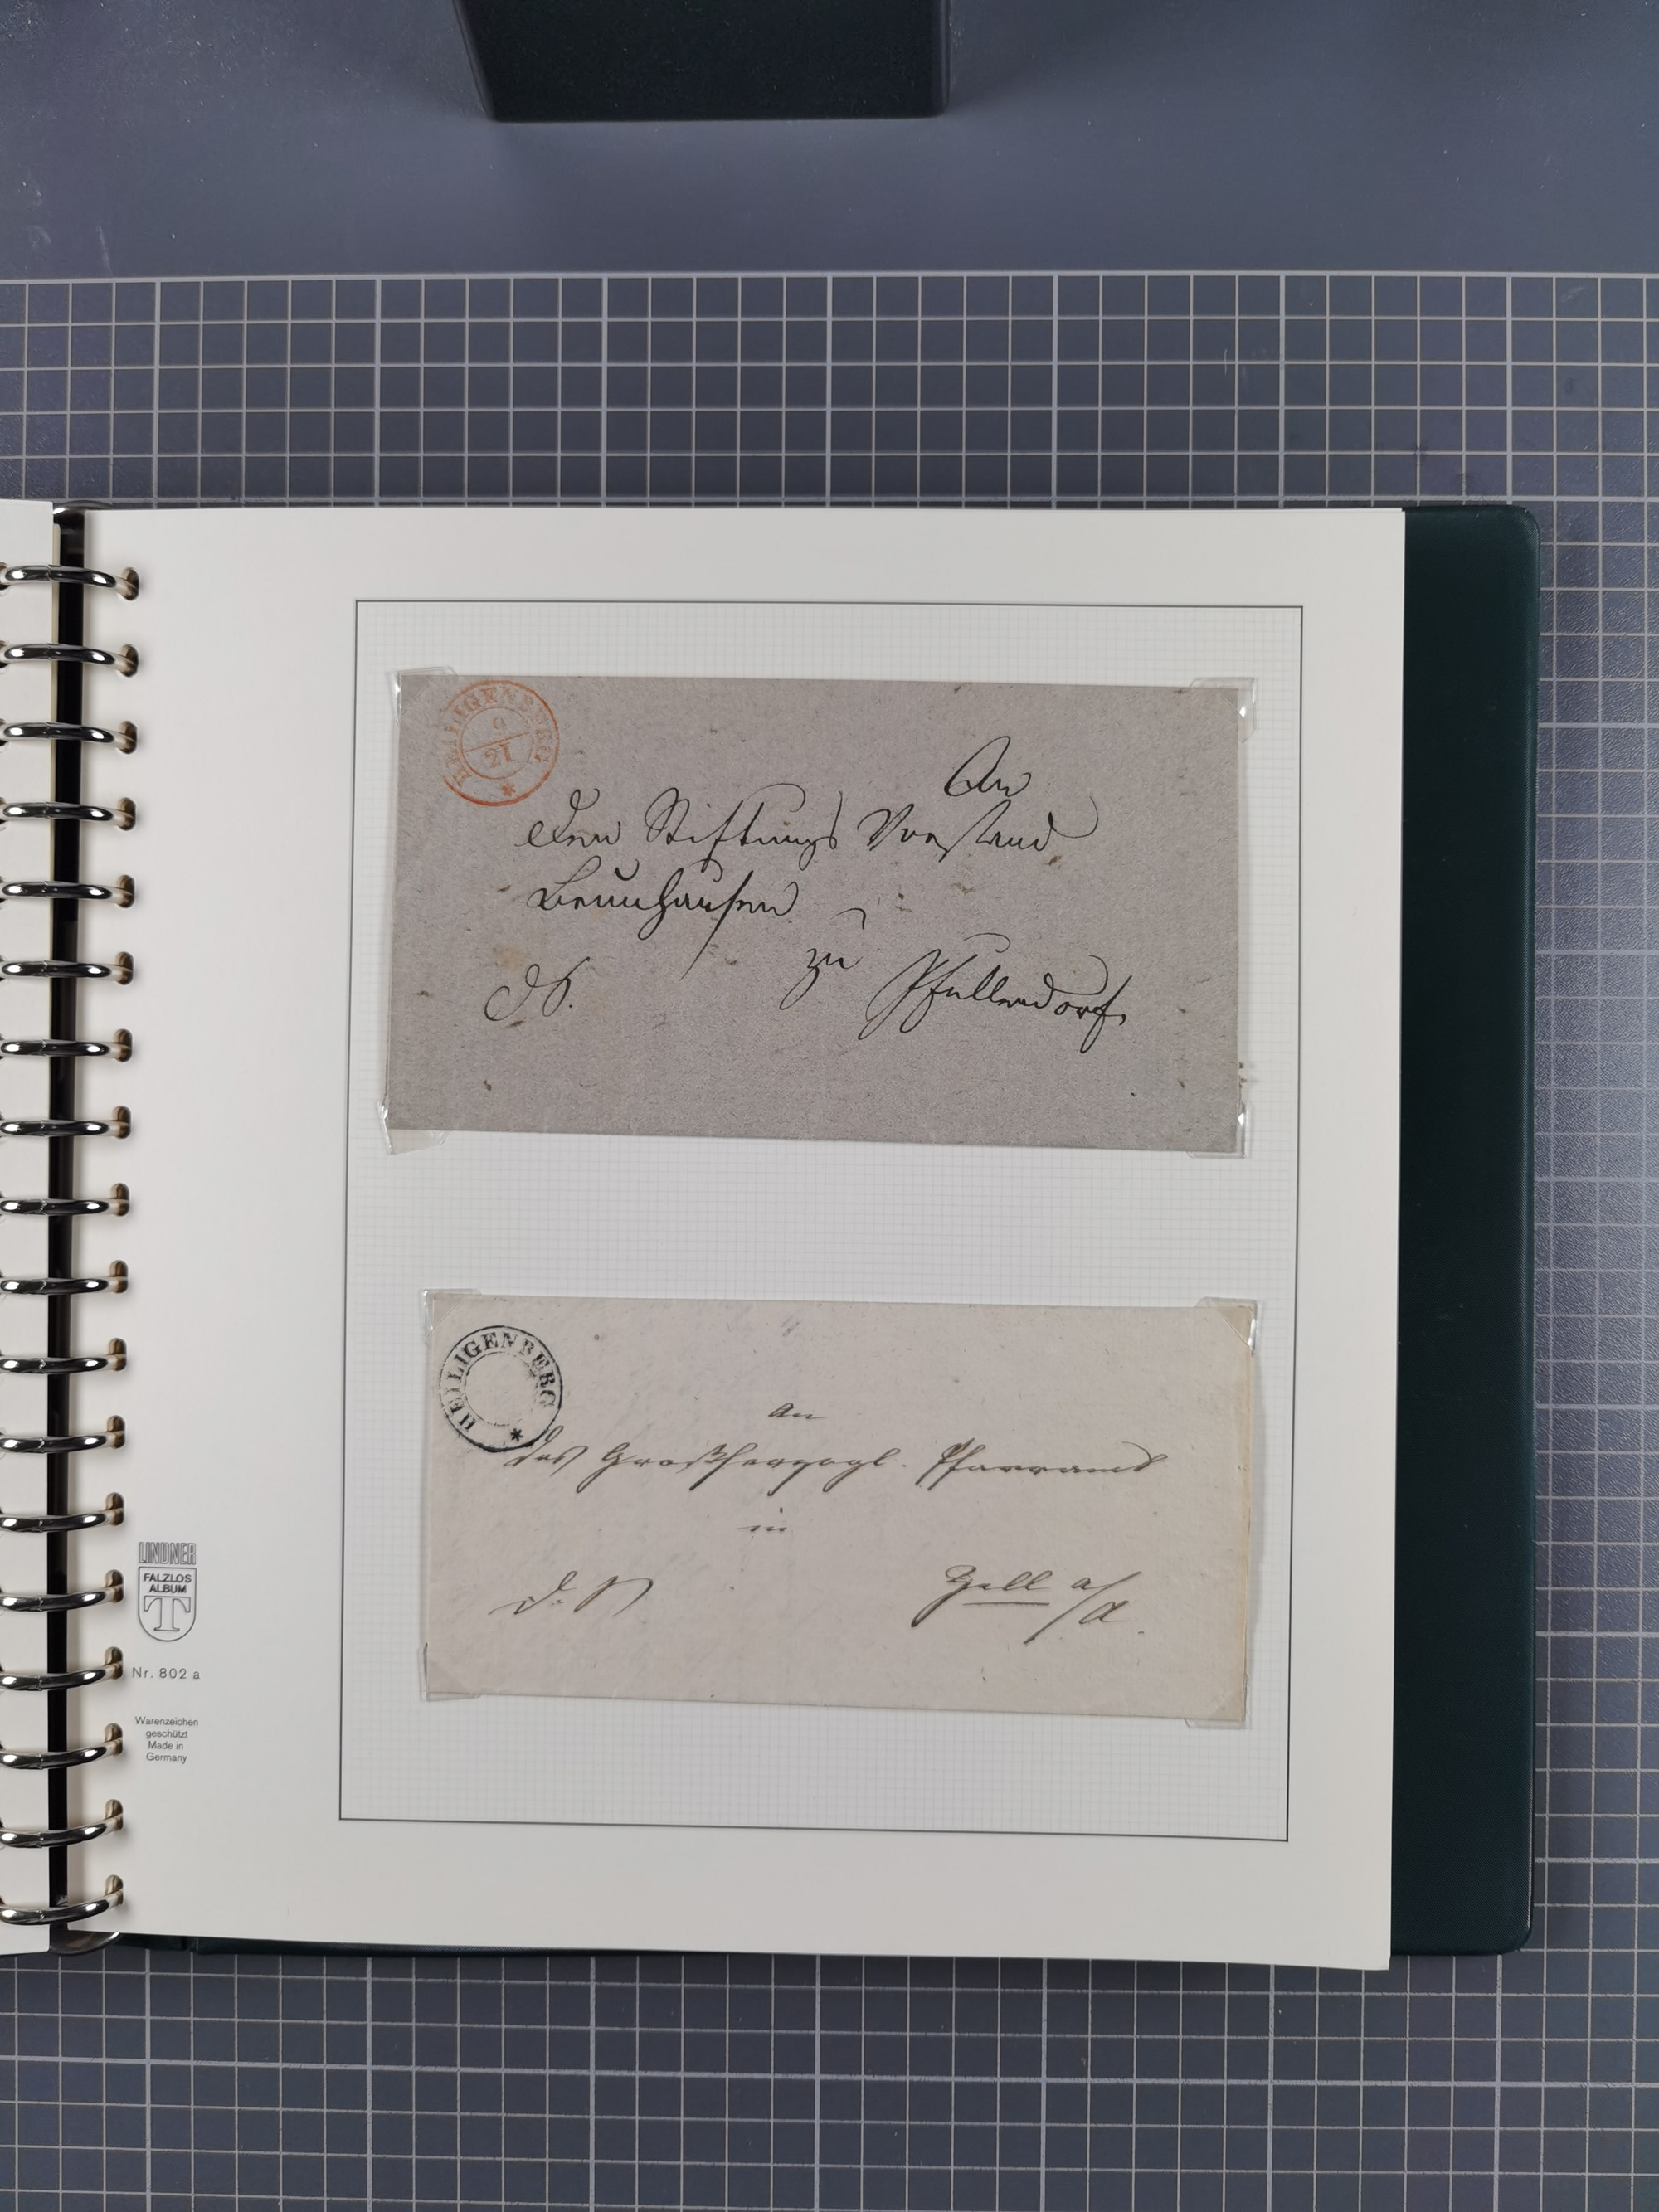 HEILIGENBERG
9
21
*
An
den Stiftungs Vorstand
zu Pfullendorf.
DS.
HEILIGENBERG
*
An
das Großherzogl. Pfarramt
in
Zell a/A.
LINDNER
FALZLOS
ALBUM
T
Nr. 802 a
Warenzeichen
geschützt
Made in
Germany